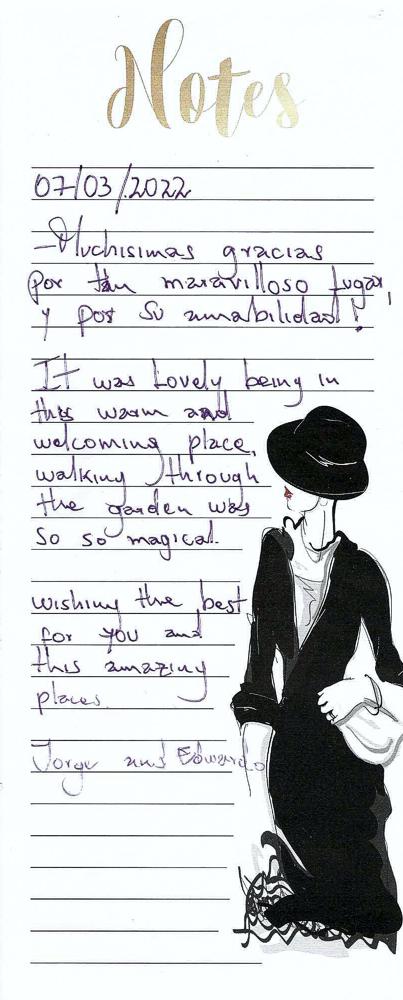 Notes
07/03/2022
-Muchisimas gracias
por tan maravilloso lugar,
y por su amabilidad!
It was Lovely being in
this warm and
welcoming place,
walking through
the garden was
so so magical.
wishing the best
for you and
this amazing
places.
Jorge and Edwardo